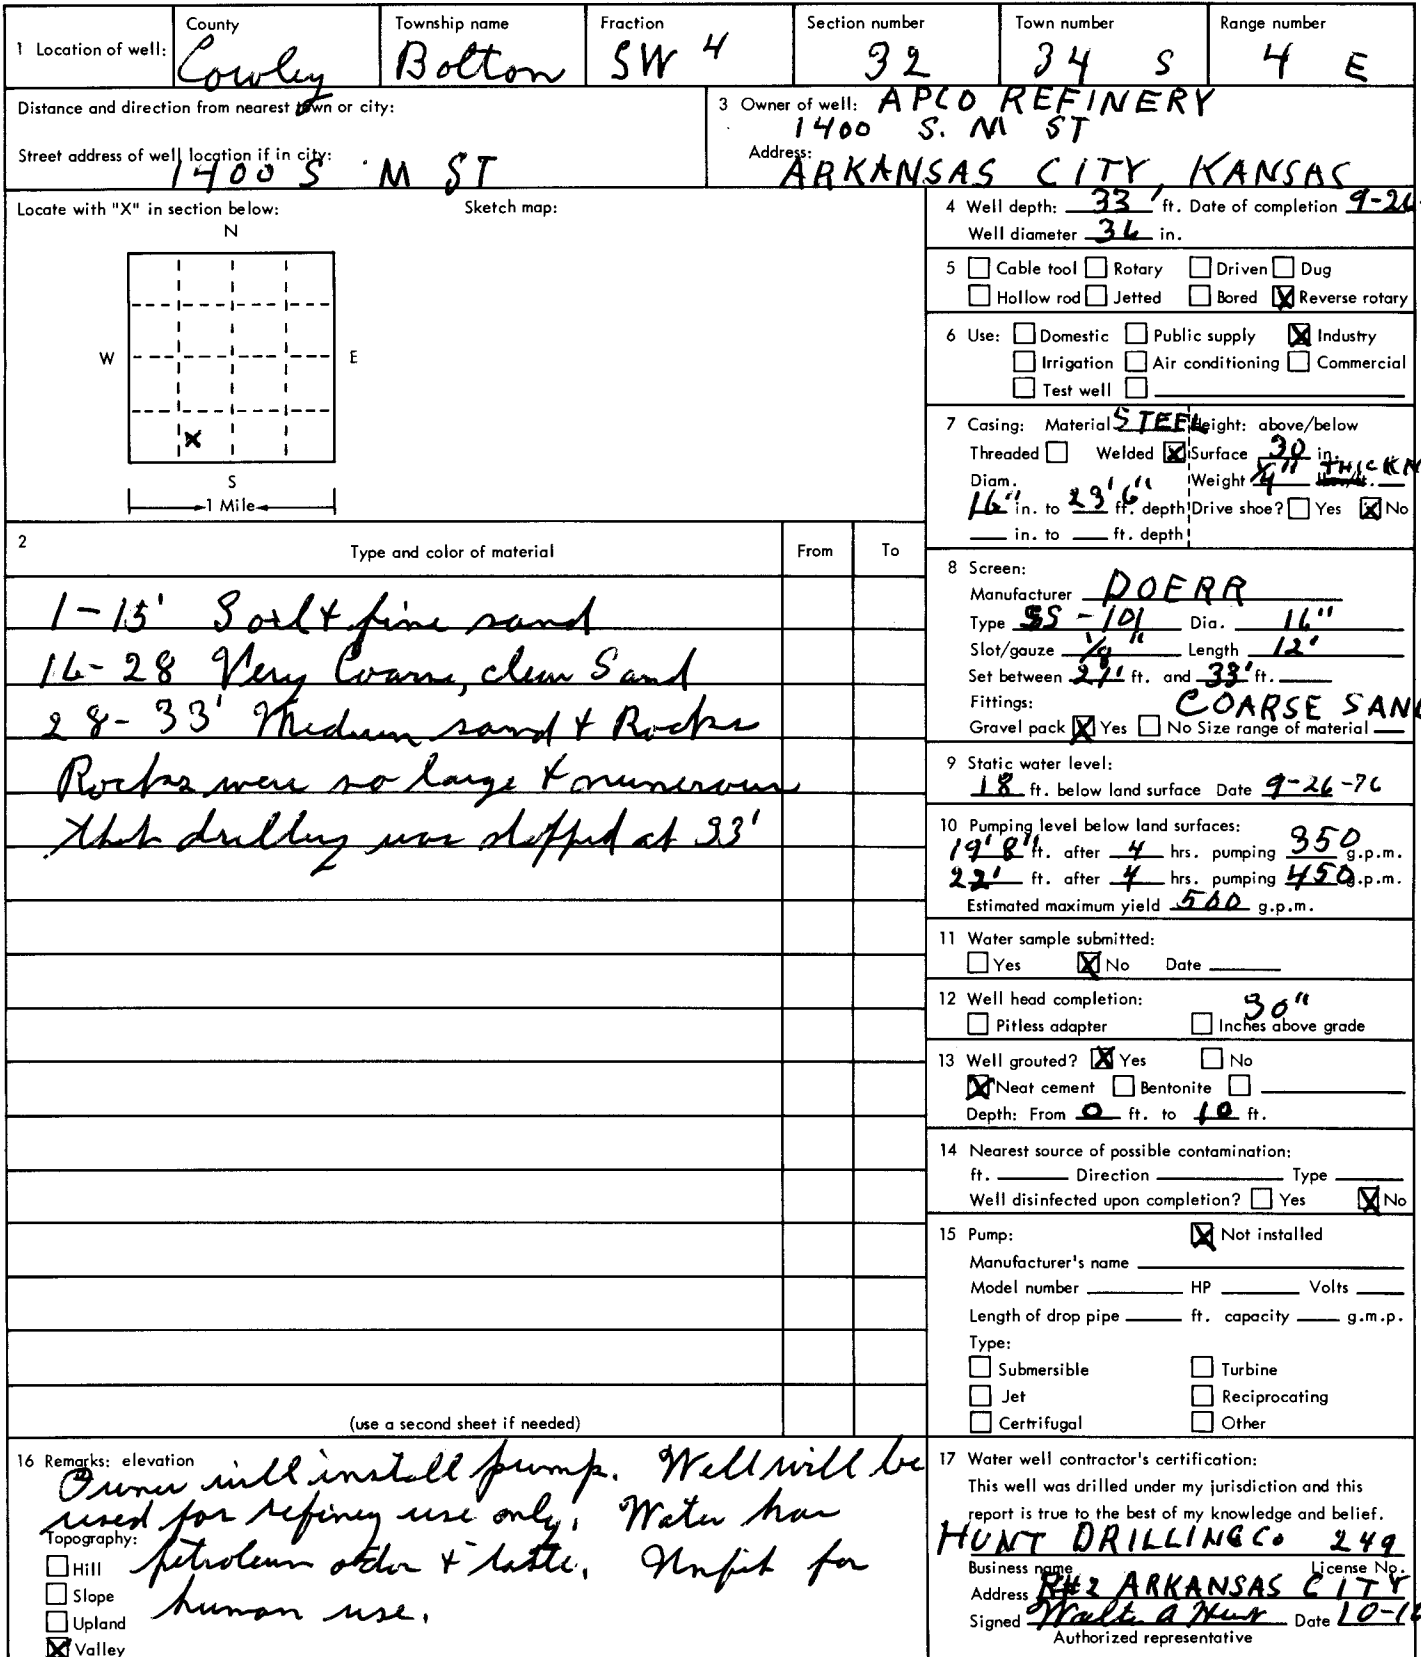 1 Location of well: County Cowley Township name Bolton Fraction SW 4 Section number 32 Town number 34 S Range number 4 E
Distance and direction from nearest town or city:
Street address of well location if in city: 1400 S M ST
3 Owner of well: APCO REFINERY
1400 S. M ST
Address: ARKANSAS CITY, KANSAS
Locate with "X" in section below: Sketch map:
N
W E
X
S
1 Mile
2 Type and color of material From To
1-15' Soil & fine sand
16-28 Very Coarse, clean Sand
28-33' Medium sand & Rocks
Rocks were so large & numerous
that drilling was stopped at 33'
(use a second sheet if needed)
4 Well depth: 33' ft. Date of completion 9-26
Well diameter 36 in.
5 Cable tool Rotary Driven Dug
Hollow rod Jetted Bored X Reverse rotary
6 Use: Domestic Public supply X Industry
Irrigation Air conditioning Commercial
Test well
7 Casing: Material STEEL Height: above/below
Threaded Welded X Surface 30 in.
Diam. Weight 1/4" THICKN
16" in. to 23'6" ft. depth Drive shoe? Yes X No
in. to ft. depth
8 Screen:
Manufacturer DOERR
Type SS-101 Dia. 16"
Slot/gauze 1/8" Length 12'
Set between 21' ft. and 33' ft.
Fittings: COARSE SAND
Gravel pack X Yes No Size range of material
9 Static water level:
18 ft. below land surface Date 9-26-76
10 Pumping level below land surfaces:
19'8" ft. after 4 hrs. pumping 350 g.p.m.
22' ft. after 4 hrs. pumping 450 g.p.m.
Estimated maximum yield 500 g.p.m.
11 Water sample submitted:
Yes X No Date
12 Well head completion: 30"
Pitless adapter Inches above grade
13 Well grouted? X Yes No
X Neat cement Bentonite
Depth: From 0 ft. to 10 ft.
14 Nearest source of possible contamination:
ft. Direction Type
Well disinfected upon completion? Yes X No
15 Pump: X Not installed
Manufacturer's name
Model number HP Volts
Length of drop pipe ft. capacity g.m.p.
Type:
Submersible Turbine
Jet Reciprocating
Certrifugal Other
16 Remarks: elevation
Owner will install pump. Well will be
used for refinery use only. Water has
petroleum odor & taste. Unfit for
human use.
Topography:
Hill
Slope
Upland
X Valley
17 Water well contractor's certification:
This well was drilled under my jurisdiction and this
report is true to the best of my knowledge and belief.
HUNT DRILLING Co 249
Business name License No.
Address R#2 ARKANSAS CITY
Signed Walter A Hunt Date 10-16
Authorized representative